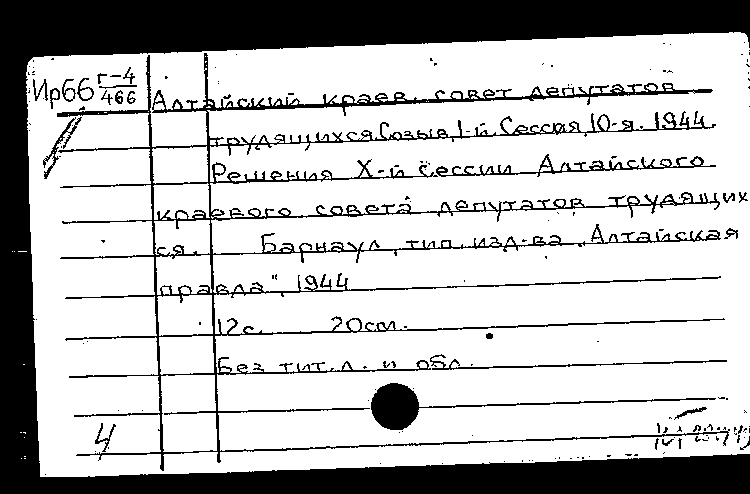 Ир66 Г-4/466
Алтайский краев. совет депутатов
трудящихся. Созыв, 1-й. Сессия, 10-я. 1944.
Решения X-й сессии Алтайского
краевого совета депутатов трудящих
ся. Барнаул, тип. изд-ва „Алтайская
правда", 1944
12с. 20см.
Без тит. л. и обл.
4